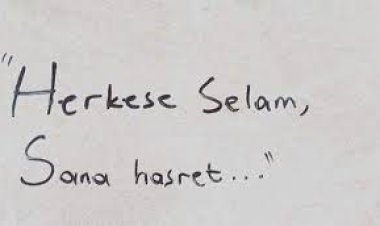 "Herkese Selam,
Sana hasret..."